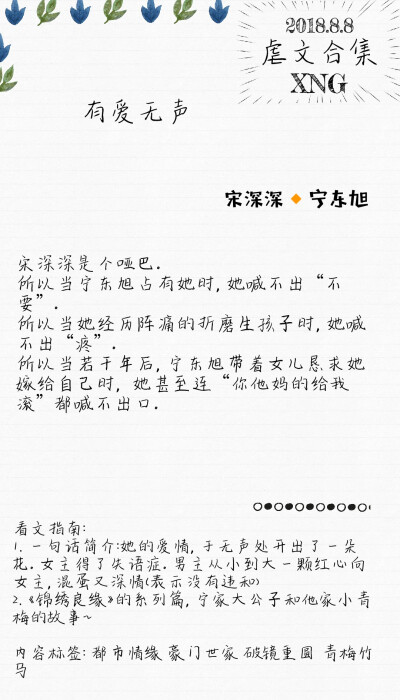 2018.8.8
虐文合集
XNG
有爱无声
宋深深🔸宁东旭
宋深深是个哑巴.
所以当宁东旭占有她时,她喊不出“不
要”.
所以当她经历阵痛的折磨生孩子时,她喊
不出“疼”.
所以当若干年后,宁东旭带着女儿恳求她
嫁给自己时,她甚至连“你他妈的给我
滚”都喊不出口.
看文指南:
1.一句话简介:她的爱情,于无声处开出了一朵
花.女主得了失语症.男主从小到大一颗红心向
女主,混蛋又深情(表示没有违和)
2.《锦绣良缘》的系列篇,宁家大公子和他家小青
梅的故事~
内容标签:都市情缘 豪门世家 破镜重圆 青梅竹
马